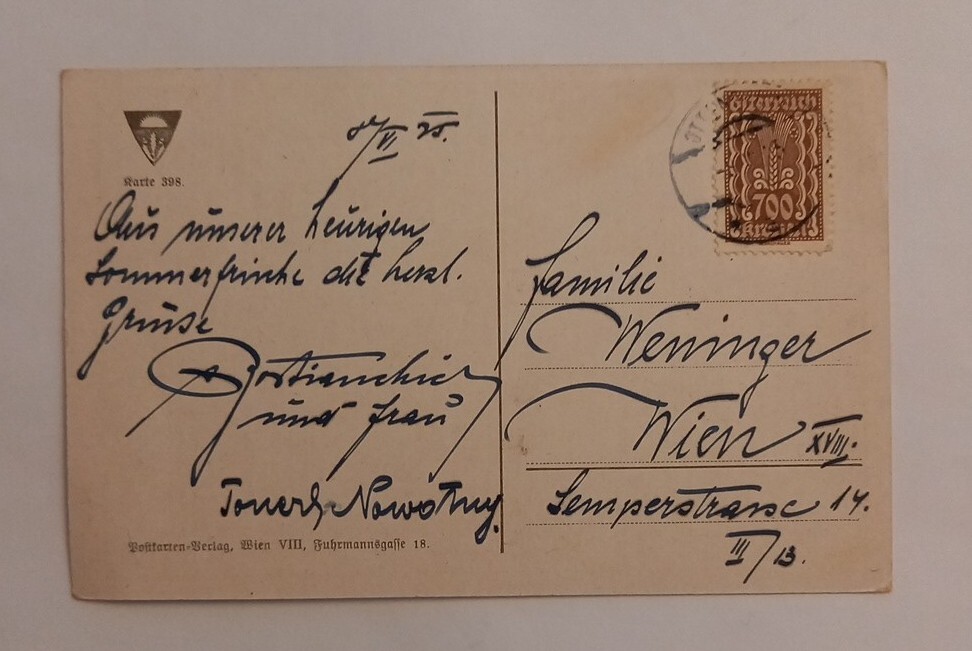 VI 25.
Karte 398.
Aus unserer heurigen
Sommerfrische die herzl.
Grüsse
und Frau
Nowotny.
Postkarten-Verlag, Wien VIII, Fuhrmannsgasse 18.
Österreich
700
Kronen
Familie
Weninger
Wien XVIII.
Semperstrasse 14.
III/13.